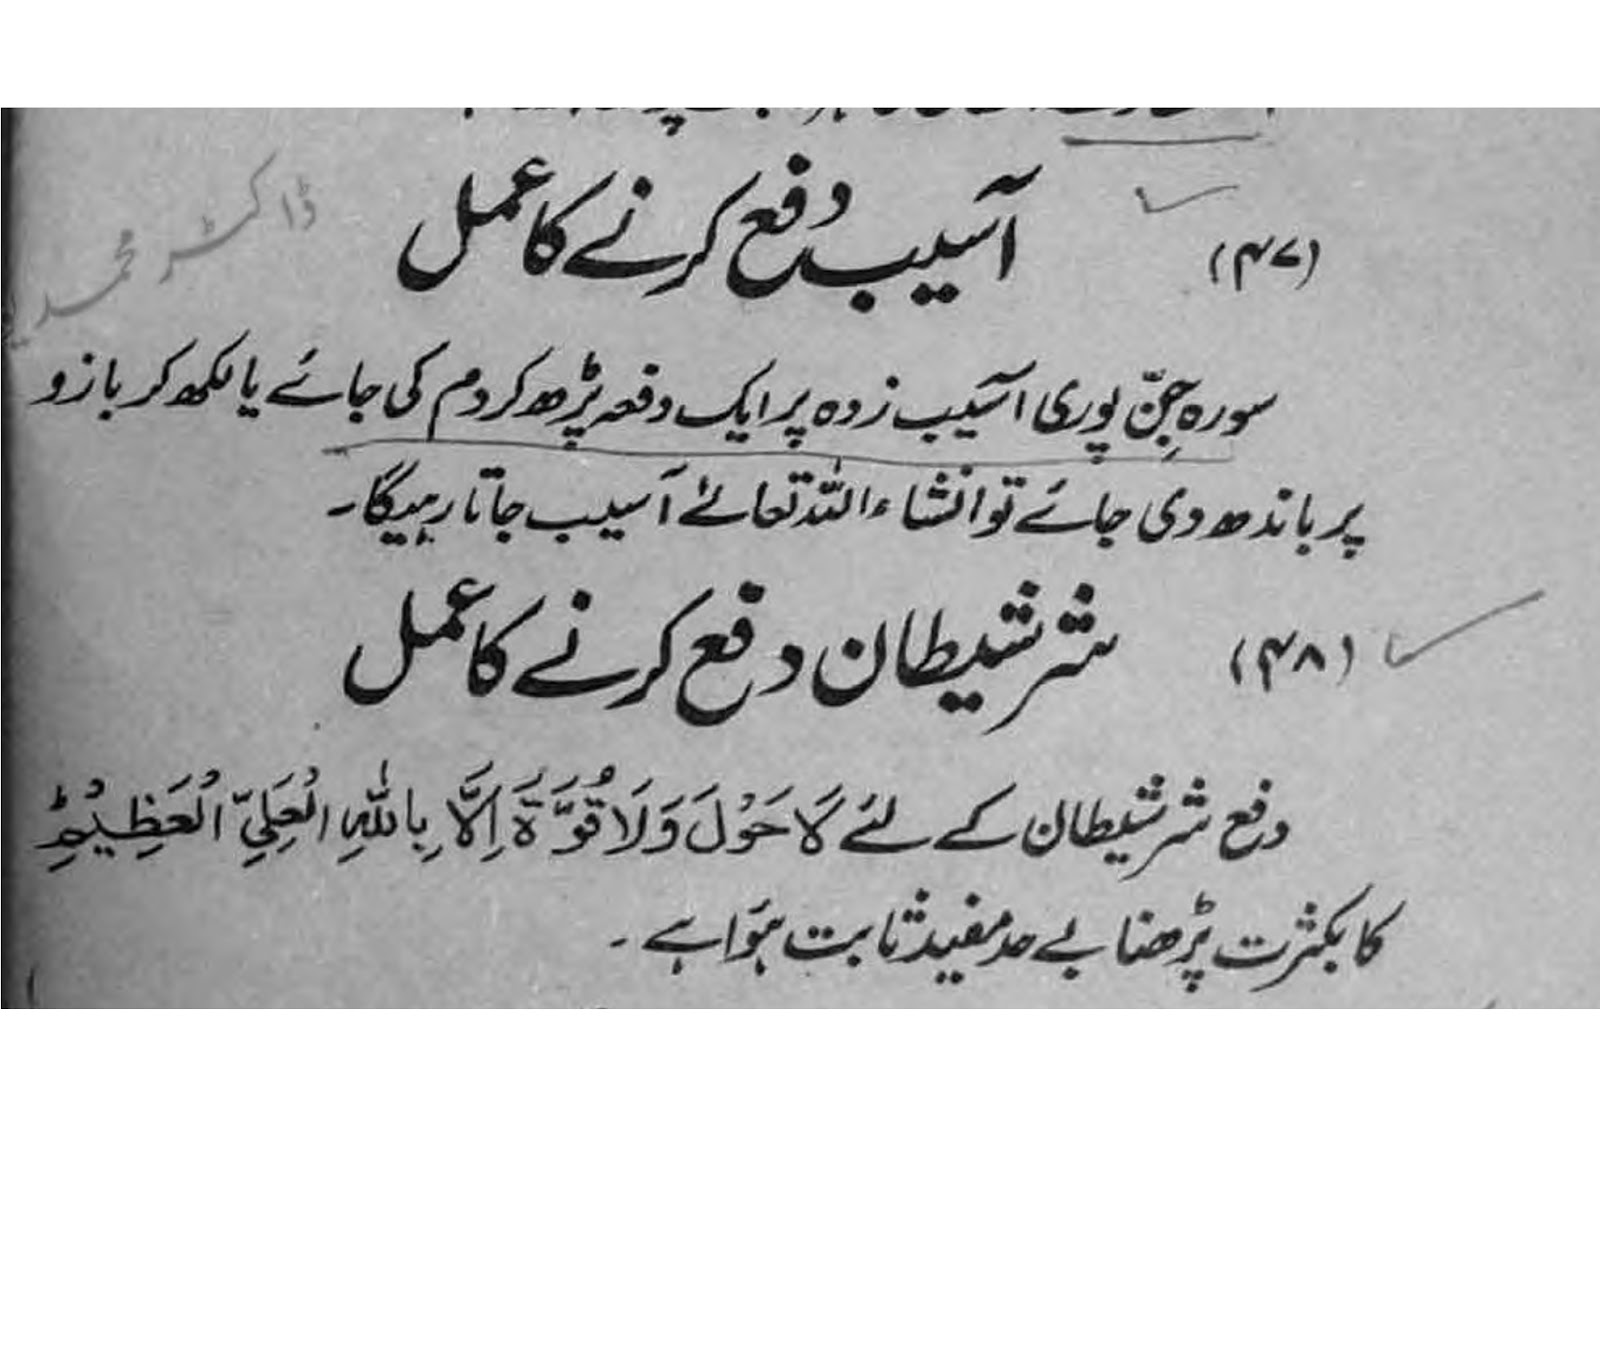 (۴۷) آسیب دفع کرنے کا عمل
ڈاکٹر محمد
سورہ جِنّ پوری آسیب زدہ پر ایک دفعہ پڑھ کر دم کی جائے یا لکھ کر بازو
پر باندھ دی جائے تو انشاء اللہ تعالےٰ آسیب جاتا رہیگا۔
(۴۸) شر شیطان دفع کرنے کا عمل
دفع شر شیطان کے لئے لَاحَوْلَ وَلَا قُوَّۃَ اِلَّا بِاللّٰہِ الْعَلِیِّ الْعَظِیْمِؕ
کا بکثرت پڑھنا بے حد مفید ثابت ہوَا ہے۔